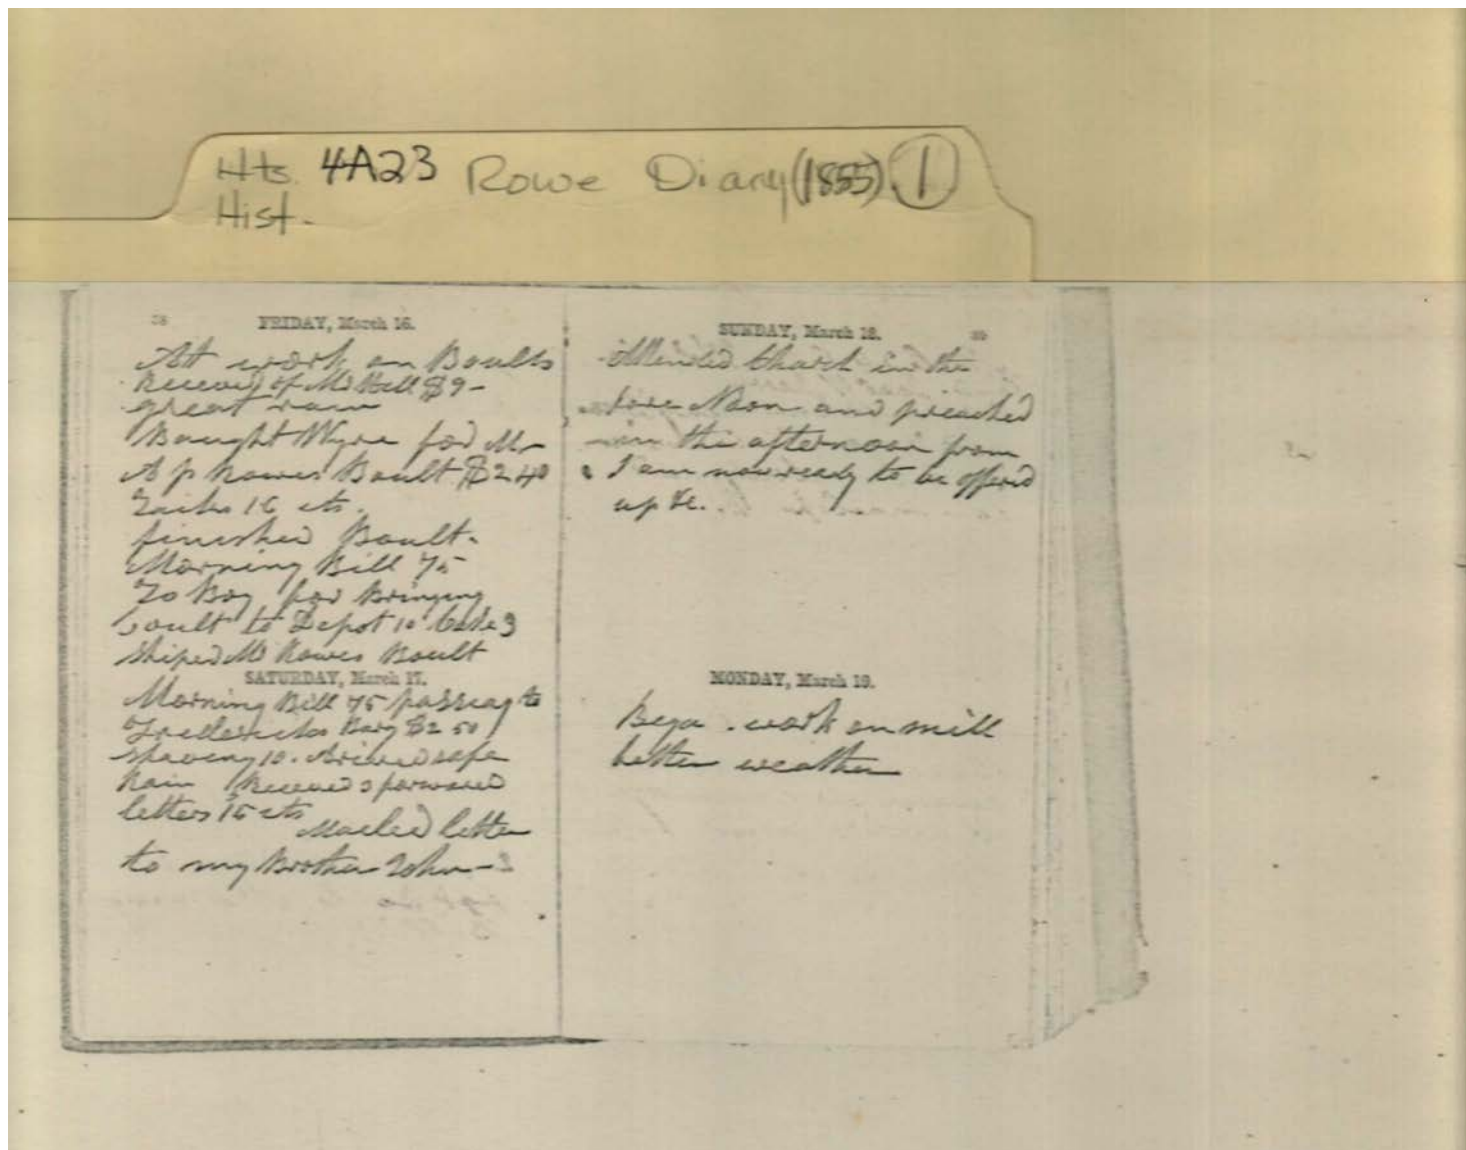 Hts. 4A23 Rowe Diary (1855) 1
Hist.
38
FRIDAY, March 16.
At work on Boults
Received of Mr Hill $9-
great rain
Bought Wyre for Mr
A p Rowes Boult $2 40
16 cts.
finished Boult.
Morning Bill 75
To Boy for Bringing
boult to Depot 10
Shiped Mr Rowes Boult
SATURDAY, March 17.
Morning Bill 75 passag to
Fredericks Burg $2 50
shaveing 10. Arived safe
Rain Received 3 forwared
letters 15 cts
Mailed letter
to my Brother John - 3
SUNDAY, March 18.
39
Attended Church in the
fore Noon and preached
in the afternoon from
I am now ready to be offered
up &c.
MONDAY, March 19.
Began work on mill
better weather